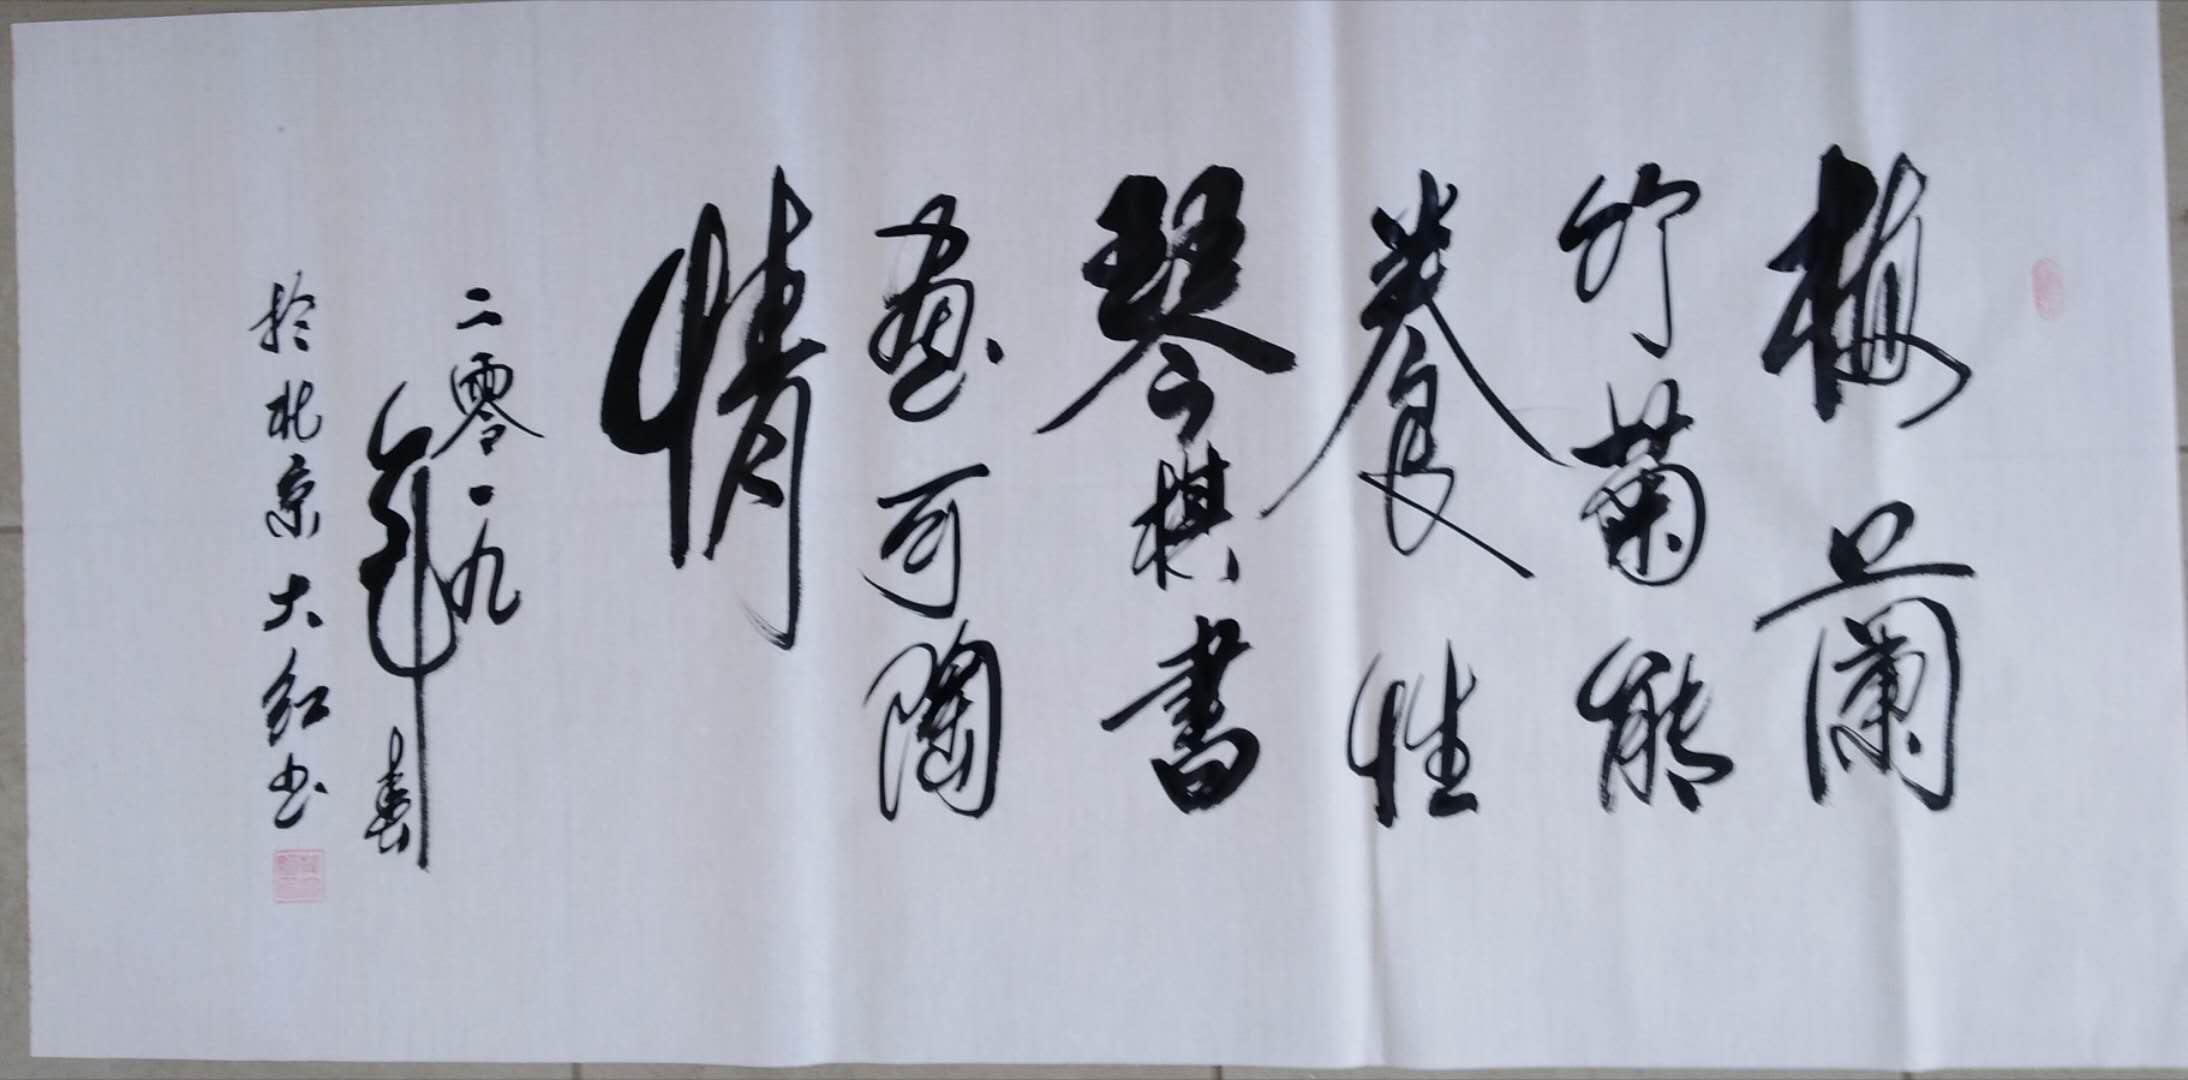 梅蘭
竹菊能
養性
琴棋書
畫可陶
情
二零一九
年春
於北京大紅书